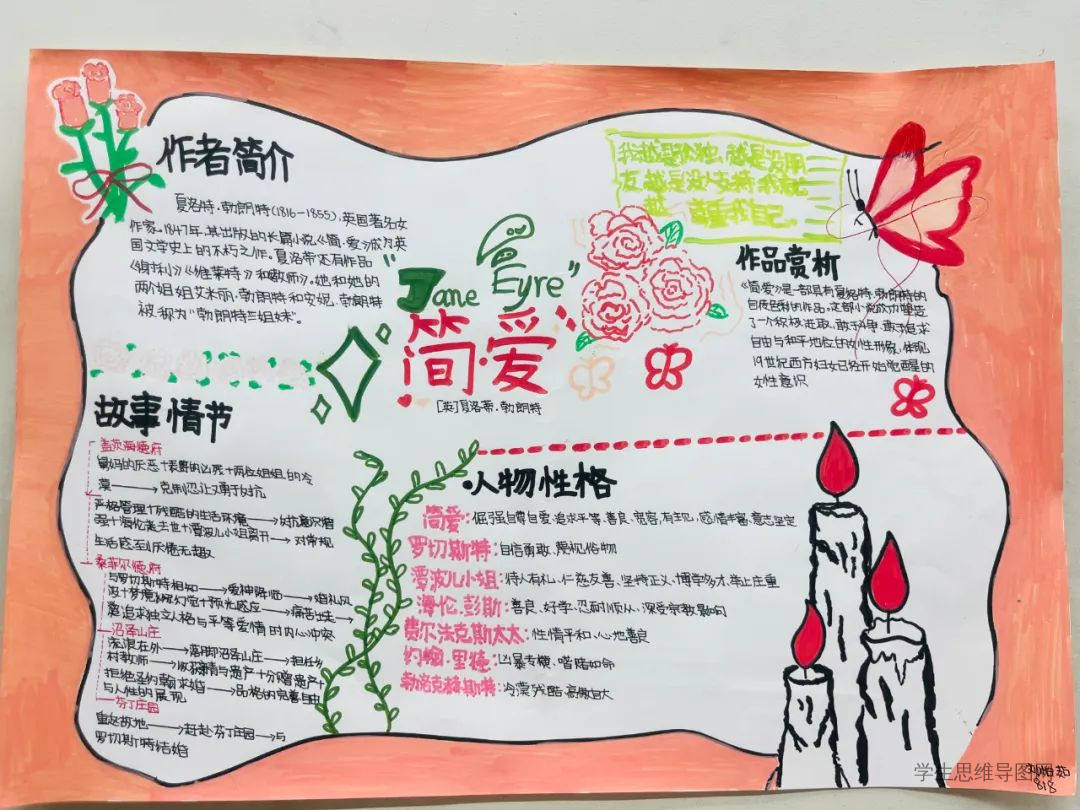 作者简介
夏洛特·勃朗特(1816-1855),英国著名女
作家。1847年,其出版的长篇小说《简·爱》成为英
国文学史上的不朽之作。夏洛蒂还有作品
《谢利》《维莱特》和《教师》。她和她的
两个姐姐艾米丽·勃朗特和安妮·勃朗特
被称为"勃朗特三姐妹"。
"Jane Eyre"
简·爱
[英]夏洛蒂·勃朗特
我越是孤独,越是没朋
友,越是没人支持,我就
越 尊重我自己。
作品赏析
《简爱》是一部具有夏洛特·勃朗特的
自传色彩的作品。这部小说成功塑造
了一个积极进取,敢于斗争,敢于追求
自由与和平地位的女性形象,体现
19世纪西方妇女已经开始觉醒的
女性意识
故事情节
盖茨海德府
舅妈的厌恶+表哥的凶残+两位姐姐的冷
漠→克制忍让又勇于对抗
严格管理+残酷的生活环境→对抗意识增
强+海伦逝去世+谭波儿小姐离开→对常规
生活感到厌倦无趣
桑菲尔德府
与罗切斯特相知→爱神降临→婚礼风
波+梦境幻觉+预兆感应→痛苦出走→
离追求独立人格与平等爱情时内心冲突
沼泽山庄
流浪在外→落脚沼泽山庄→担任乡
村教师→收获亲情与遗产+分隔遗产+
拒绝圣约翰求婚→品格的完善自由
与人性的展现
芬丁庄园
重赴故地→赶赴芬丁庄园→与
罗切斯特结婚
·人物性格
简爱:倔强自尊自爱,追求平等、善良、宽容,有主见,感情丰富、意志坚定
罗切斯特:自信勇敢、蔑视俗物
谭波儿小姐:待人有礼、仁慈友善、坚持正义、博学多才、举止庄重
海伦.彭斯:善良、好学、忍耐顺从、深受宗教影响
费尔法克斯太太:性情平和、心地善良
约翰·里德:凶暴专横、嗜赌如命
勃洛克赫斯特:冷漠残酷高傲自大
学生思维导图
818